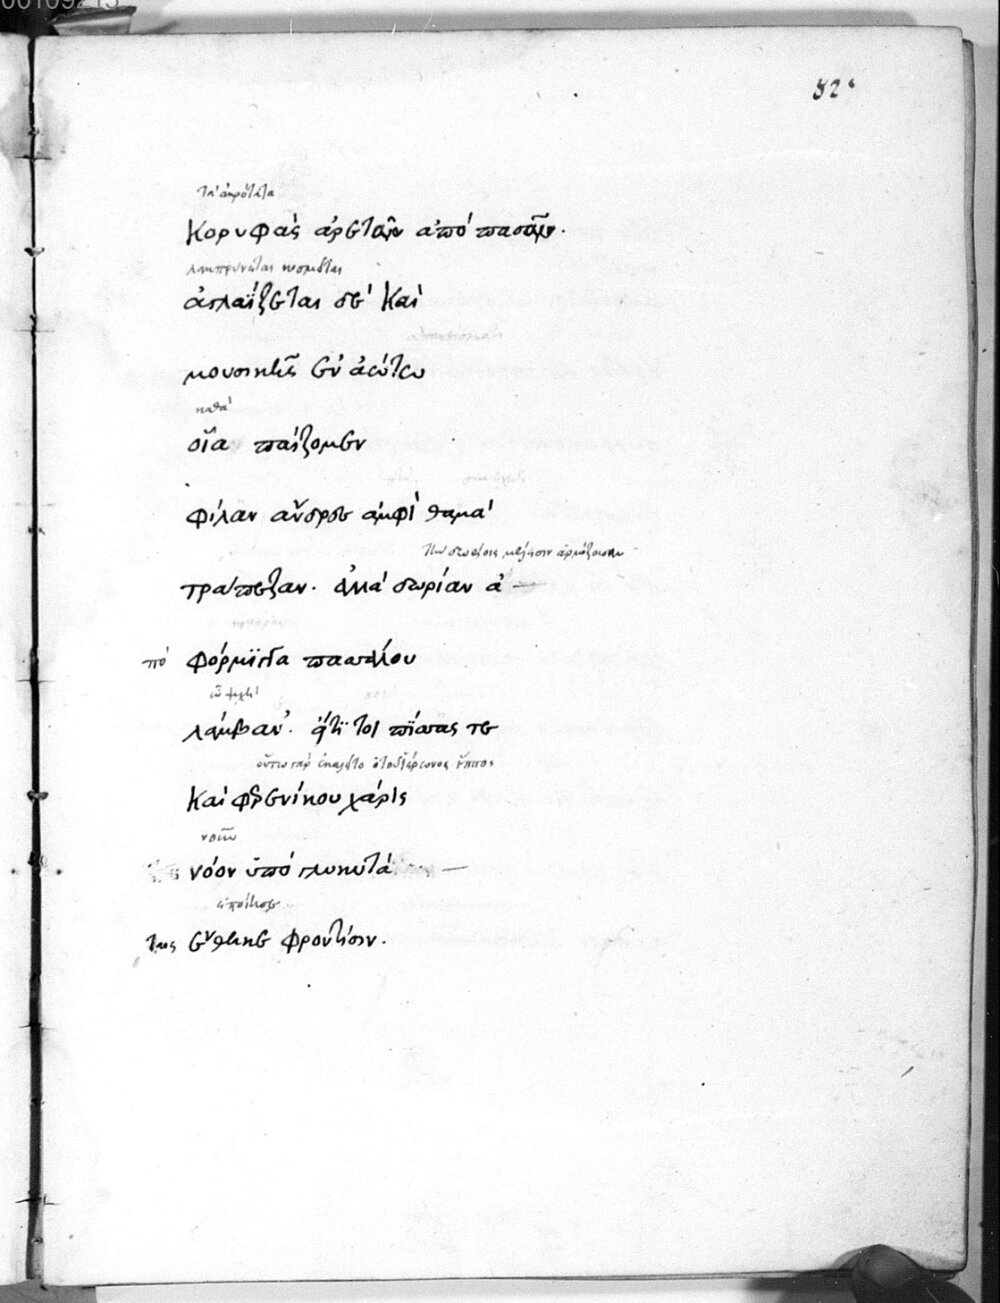 00109215
82
τα ἀκρότατα
κορυφὰς ἀρετᾶν ἀπὸ πασᾶν.
λαμπρύνεται κοσμεῖται
ἀγλαΐζεται δὲ καὶ
μουσικῆς ἐν ἀώτω
καθὰ
οἷα παίζομεν
φίλαν ἄνδρες ἀμφὶ θαμὰ
τράπεζαν. ἀλλὰ δωρίαν ἀ
πὸ φόρμιγγα πασσάλου
λάμβαν'. εἴ τί τοι πίσας τε
οὕτω γὰρ ἐκαλεῖτο ὁ τοῦ ἱέρωνος ἵππος
καὶ φερενίκου χάρις
νοῦν
νόον ὑπὸ γλυκυτά
ἐποίησε
ταις ἔθηκε φροντίσιν.